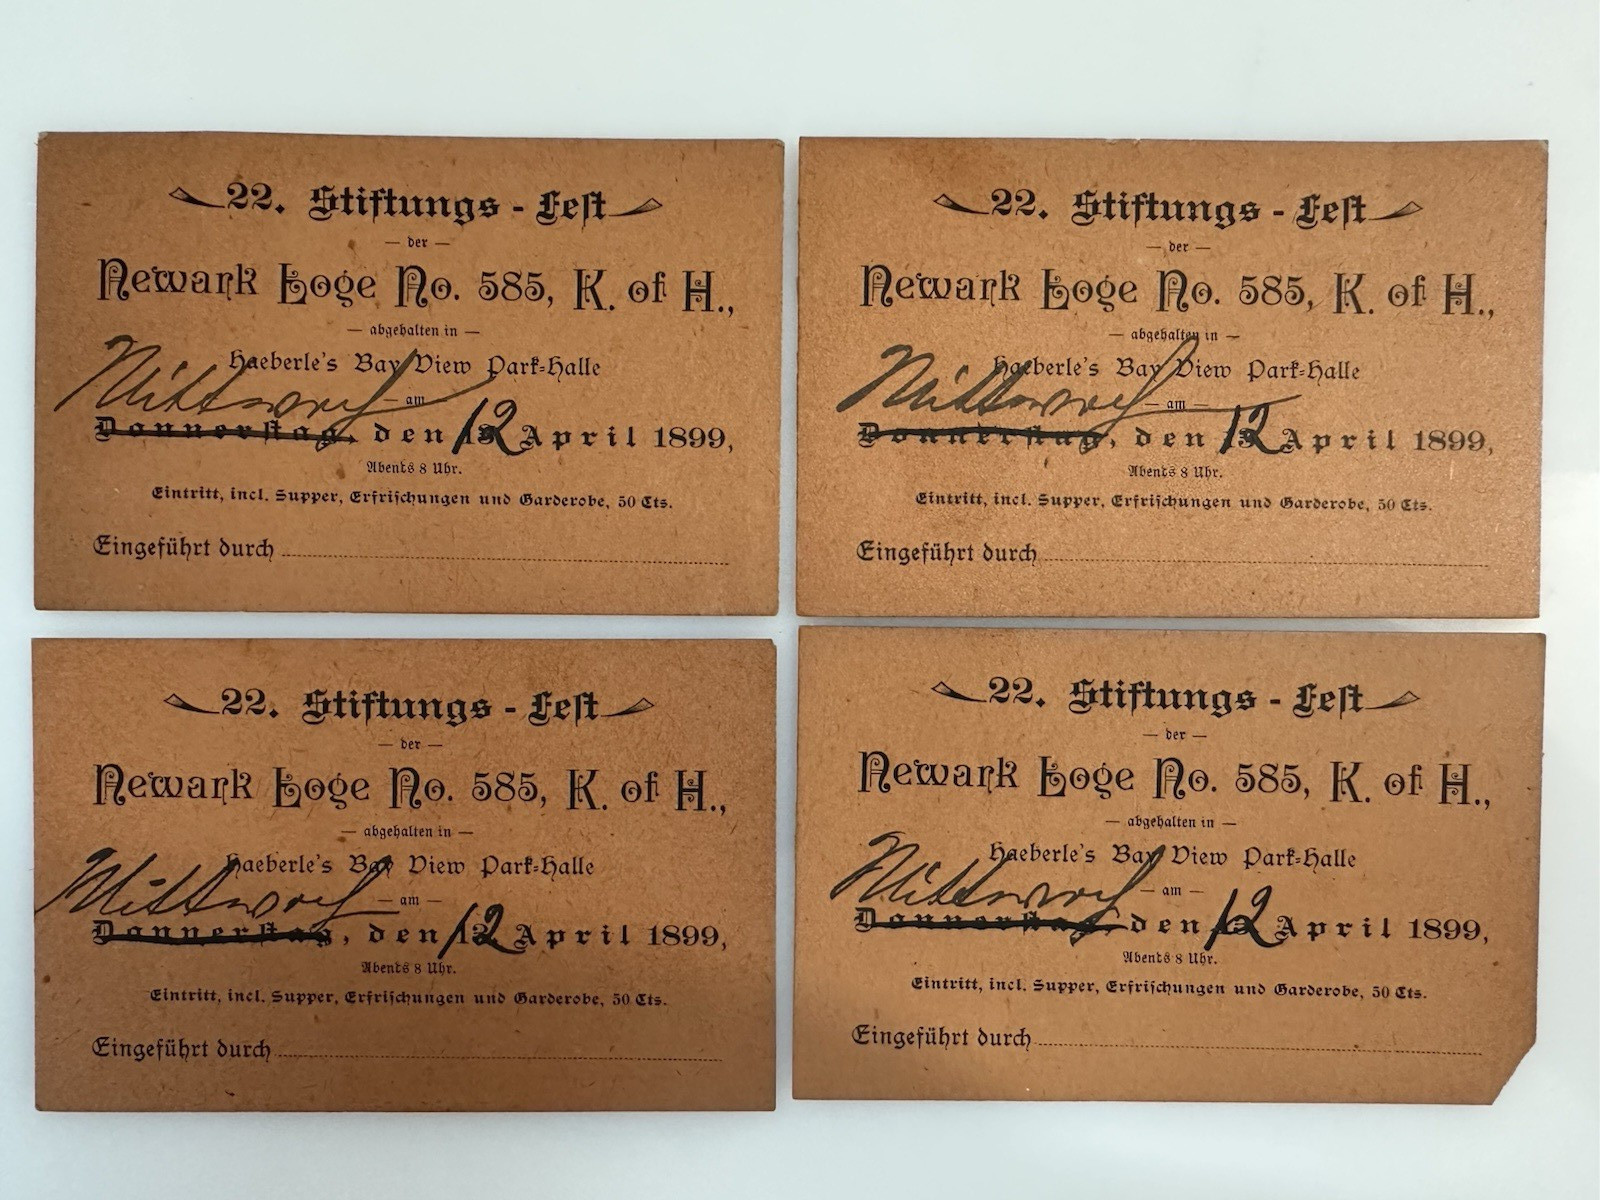 22. Stiftungs-Fest
— der —
Newark Loge No. 585, K. of H.,
— abgehalten in —
Haeberle's Bay View Park-Halle
Mittwoch
— am —
Donnerstag, den 12 April 1899,
Abends 8 Uhr.
Eintritt, incl. Supper, Erfrischungen und Garderobe, 50 Cts.
Eingeführt durch
22. Stiftungs-Fest
— der —
Newark Loge No. 585, K. of H.,
— abgehalten in —
Haeberle's Bay View Park-Halle
Mittwoch
— am —
Donnerstag, den 12 April 1899,
Abends 8 Uhr.
Eintritt, incl. Supper, Erfrischungen und Garderobe, 50 Cts.
Eingeführt durch
22. Stiftungs-Fest
— der —
Newark Loge No. 585, K. of H.,
— abgehalten in —
Haeberle's Bay View Park-Halle
Mittwoch
— am —
Donnerstag, den 12 April 1899,
Abends 8 Uhr.
Eintritt, incl. Supper, Erfrischungen und Garderobe, 50 Cts.
Eingeführt durch
22. Stiftungs-Fest
— der —
Newark Loge No. 585, K. of H.,
— abgehalten in —
Haeberle's Bay View Park-Halle
Mittwoch
— am —
Donnerstag, den 12 April 1899,
Abends 8 Uhr.
Eintritt, incl. Supper, Erfrischungen und Garderobe, 50 Cts.
Eingeführt durch